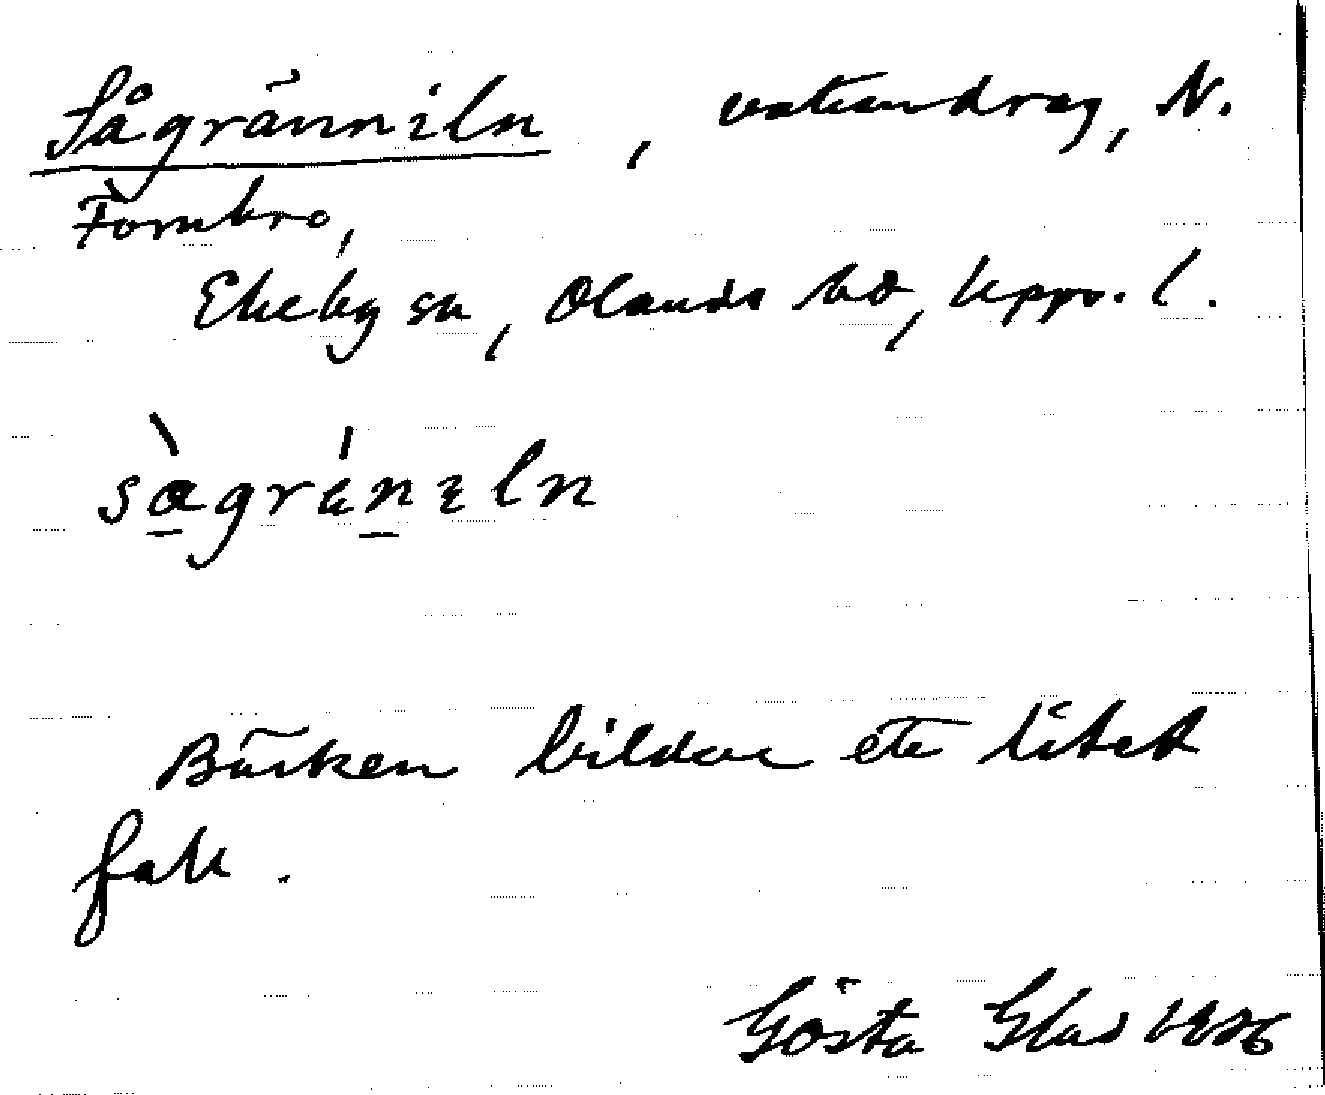 Sågränniln, vattendrag, N.
Fornbro,
Ekeby sn, Olands hd, Upps. l.
Bäcken bildar ett litet
fall.
Gösta Glad